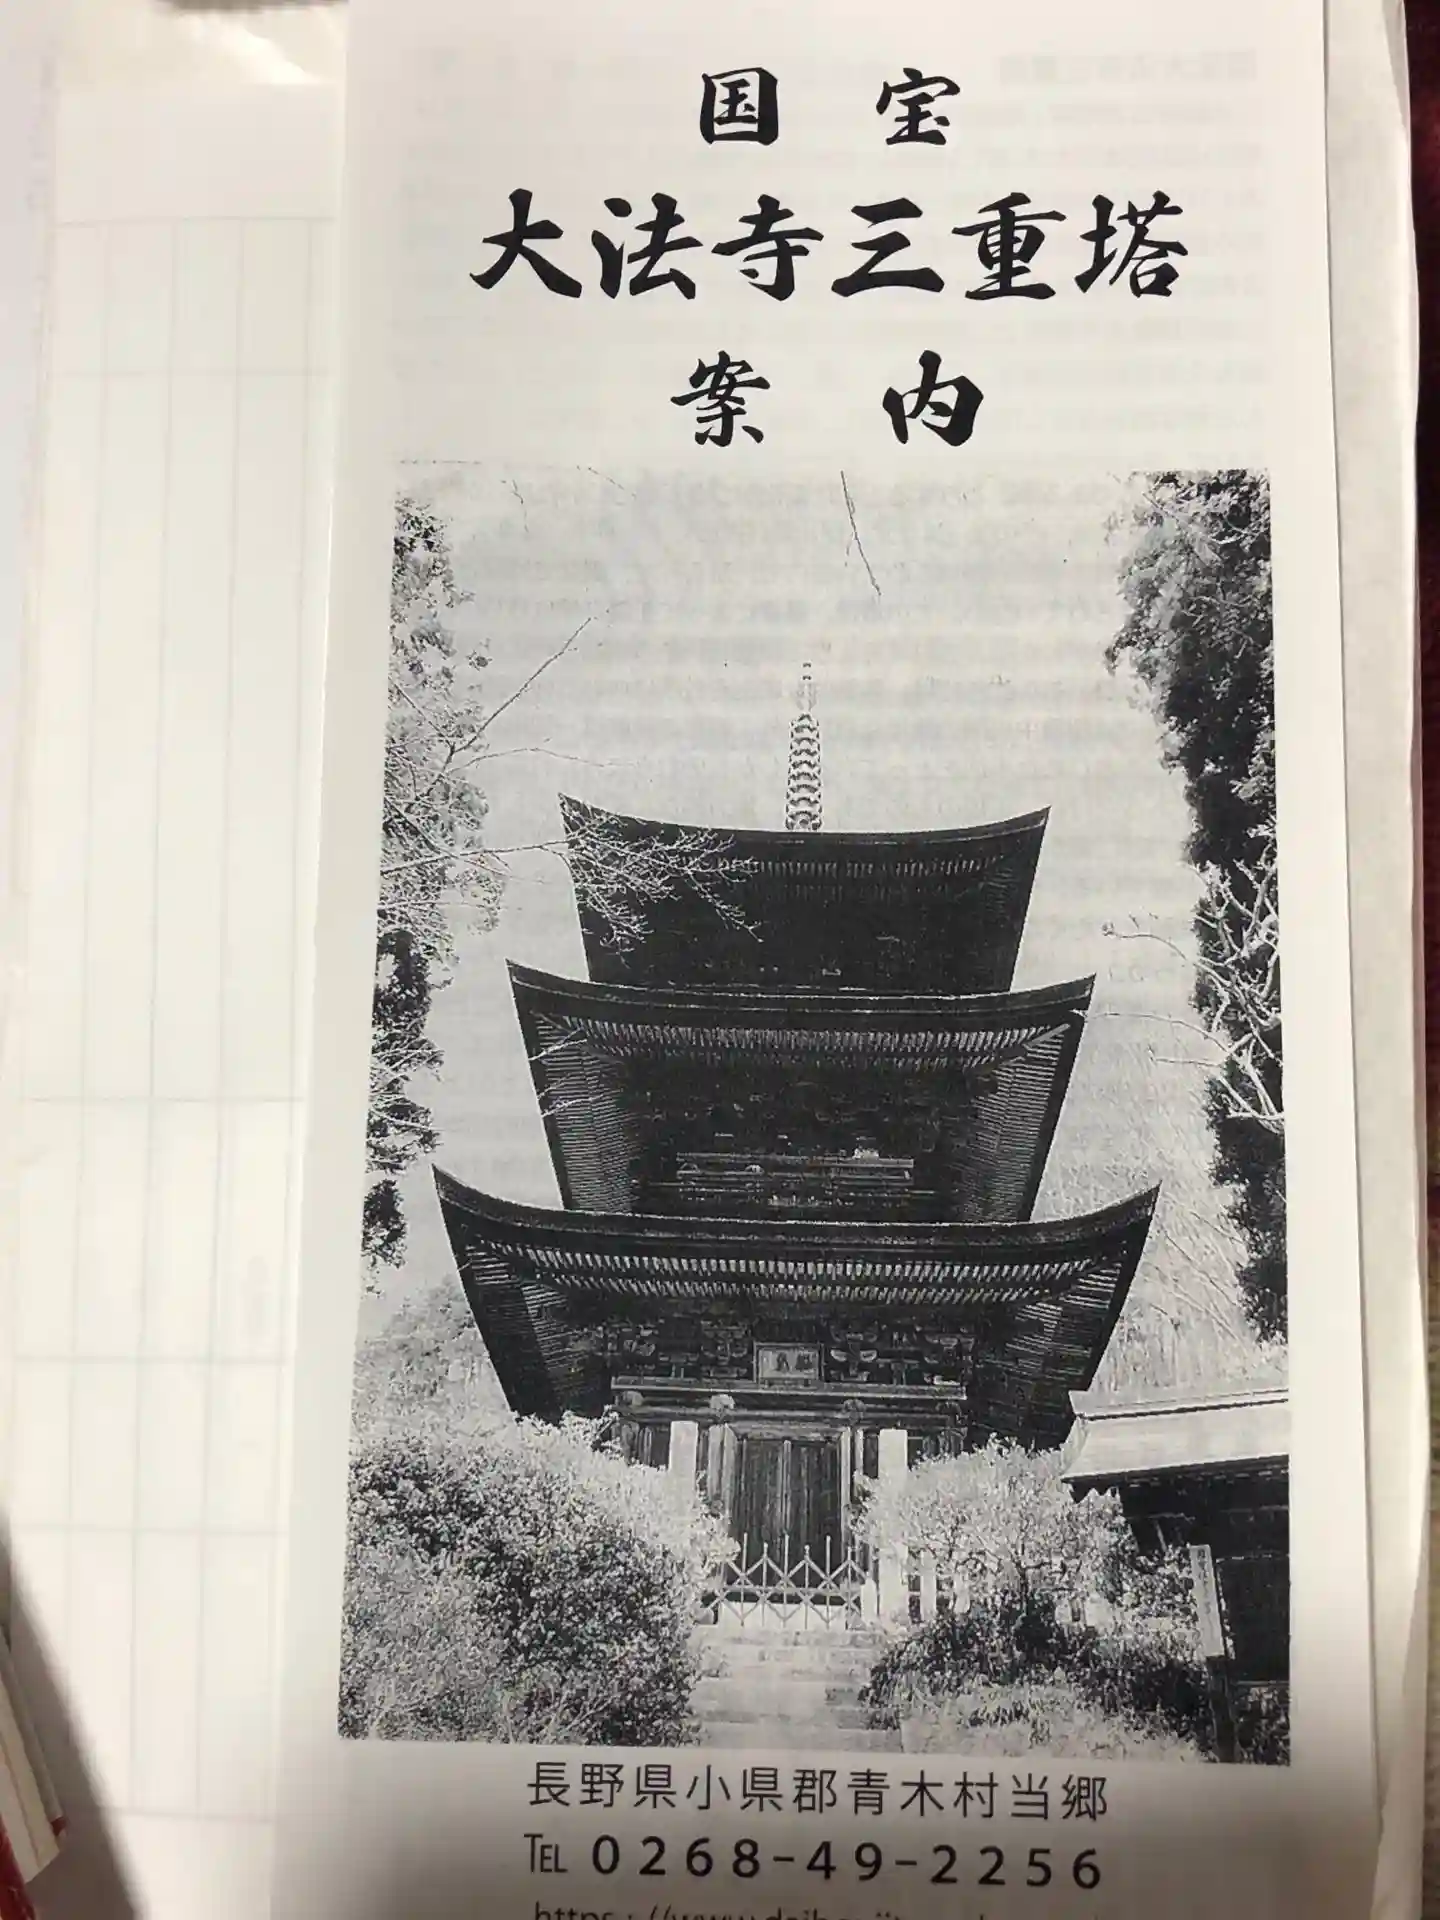 国宝
大法寺三重塔
案内
長野県小県郡青木村当郷
TEL 0268-49-2256